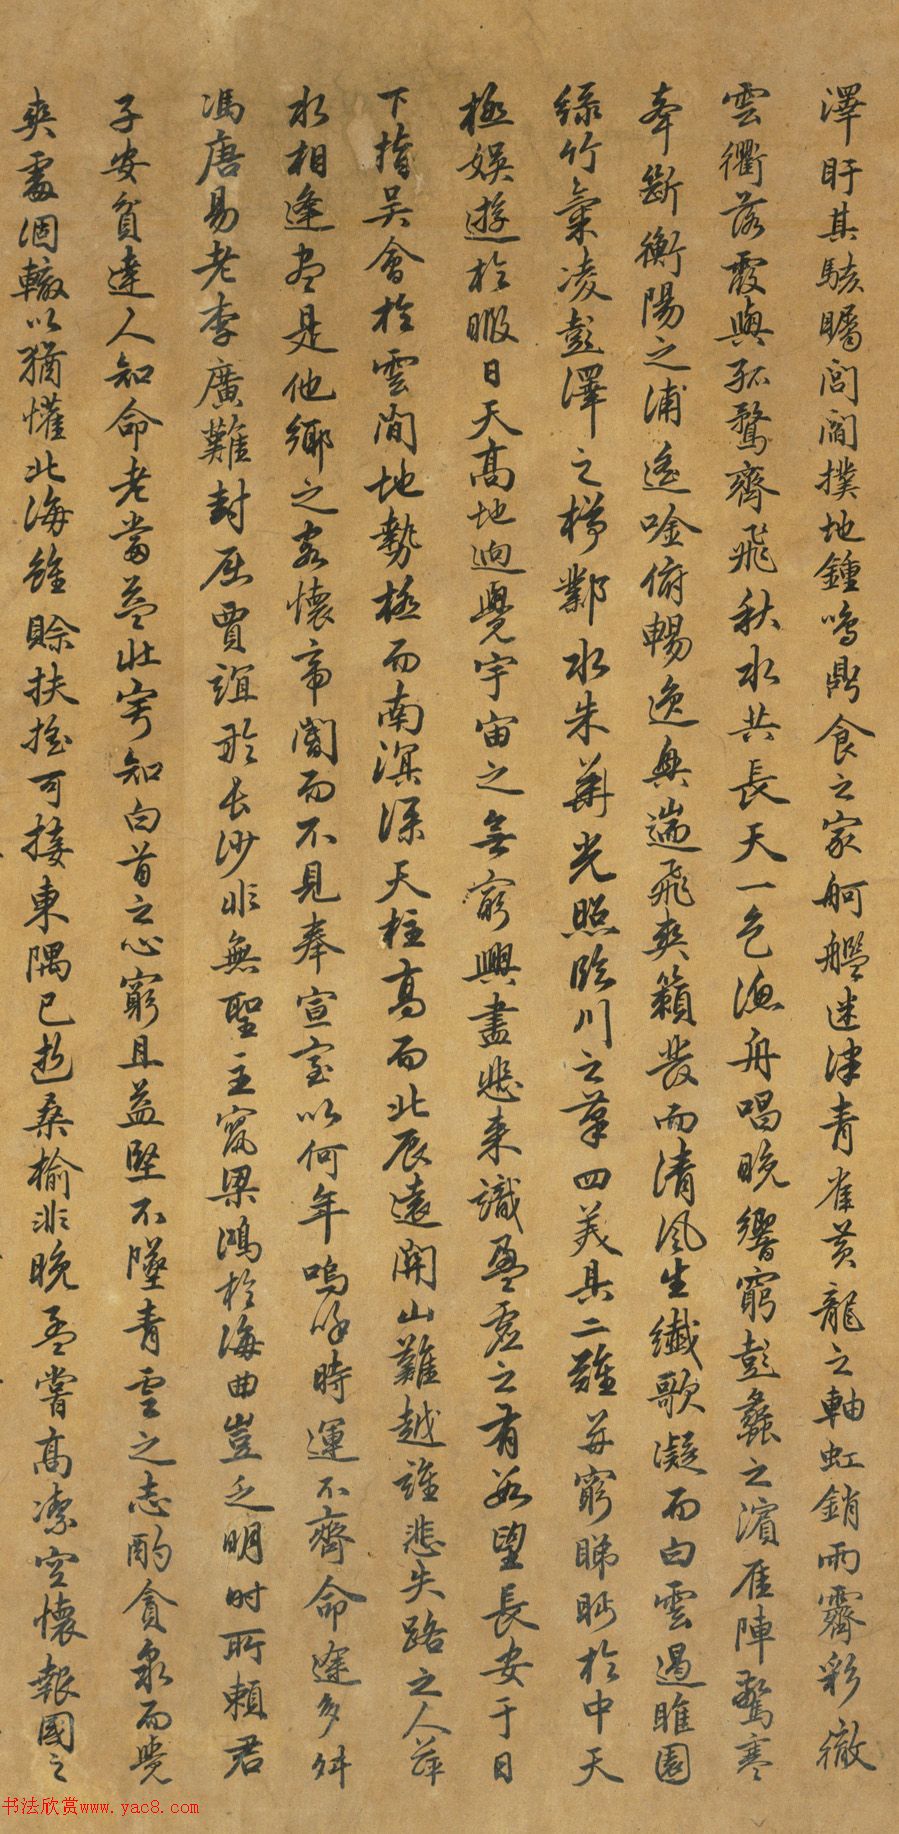 澤盱其駭矚閭閻撲地鍾鳴鼎食之家舸艦迷津青雀黃龍之軸虹銷雨霽彩徹
雲衢落霞與孤鶩齊飛秋水共長天一色漁舟唱晚響窮彭蠡之濱雁陣驚寒
聲斷衡陽之浦遙吟俯暢逸興遄飛爽籟發而清風生纖歌凝而白雲遏睢園
綠竹氣凌彭澤之樽鄴水朱華光照臨川之筆四美具二難并窮睇眄於中天
極娛遊於暇日天高地迥覺宇宙之無窮興盡悲來識盈虛之有數望長安于日
下指吳會於雲間地勢極而南溟深天柱高而北辰遠關山難越誰悲失路之人萍
水相逢盡是他鄉之客懷帝閽而不見奉宣室以何年嗚呼時運不齊命途多舛
馮唐易老李廣難封屈賈誼於長沙非無聖主竄梁鴻於海曲豈乏明時所賴君
子安貧達人知命老當益壯寧知白首之心窮且益堅不墜青雲之志酌貪泉而覺
爽處涸轍以猶懽北海雖賒扶搖可接東隅已逝桑榆非晚孟嘗高潔空懷報國之
书法欣赏www.yac8.com